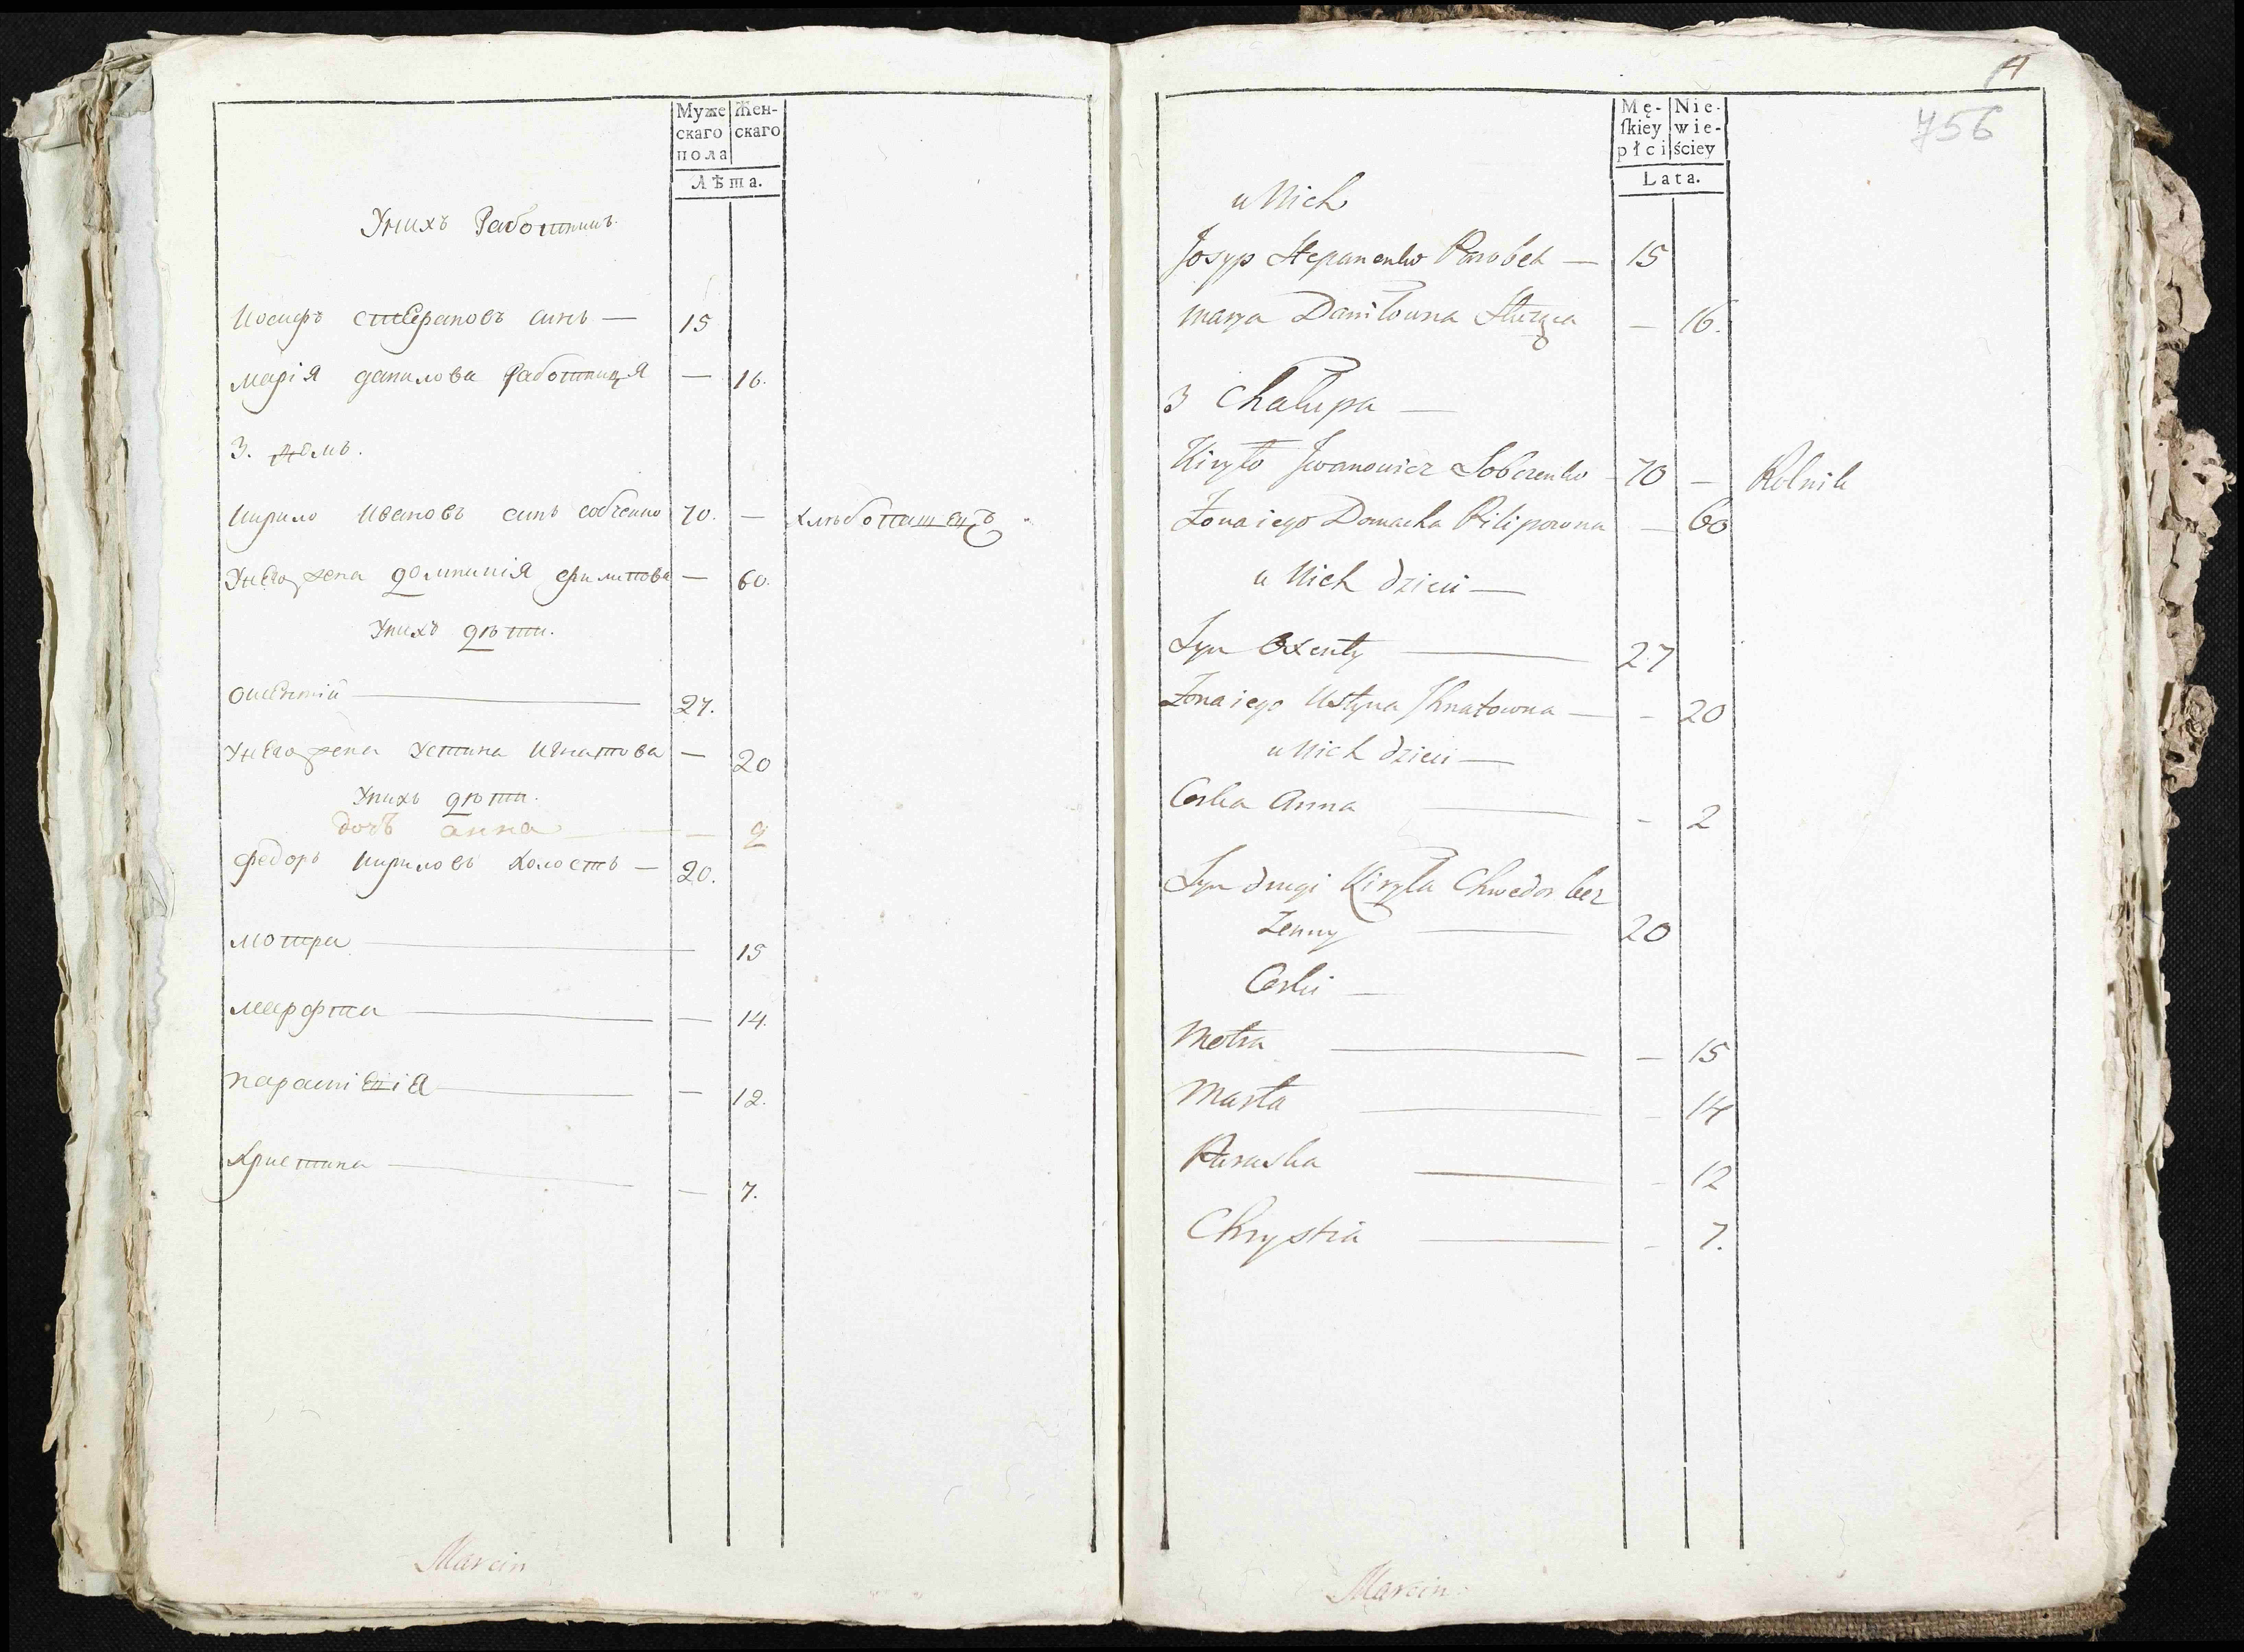 Муже
скаго
пола
Жен-
скаго
Лѣта.
Унихъ Работникъ.
Иосифъ стефановъ синъ — 15
Марія данилова работница — 16.
3. домъ.
Кирило Ивановъ синъ собченко 70. — хлѣбопашецъ
Унего жена домникія филипова — 60.
Унихъ дѣти.
Оксентій 27.
Унего жена Устина Игнатова — 20
Унихъ дѣти.
дочъ анна — 2
Федоръ Кириловъ холостъ — 20.
Мотра 15
Марфта — 14.
параскевіа — 12.
Христина — 7.
Marcin
4
756
Mę-
ſkiey
płci
Nie-
wie-
ściey
Lata.
u Nich
Josyp Stepanenko Parobek — 15
Marya Daniłowna Służąca — 16.
3 Chałupa —
Kiryło Jwanowicz Sobczenko 70 — Rolnik
Żona iego Domacha Pilipowna — 60
u Nich dzieci —
Syn Oxenty 27
Żona iego Ustyna Jhnatowna — - 20
u Nich dzieci —
Corka Anna - 2
Syn drugi Kiryła Chwedor bez
Żenny 20
Corki —
Motra — 15
Marta - 14
Paraska - 12
Chrystia - 7.
Marcin